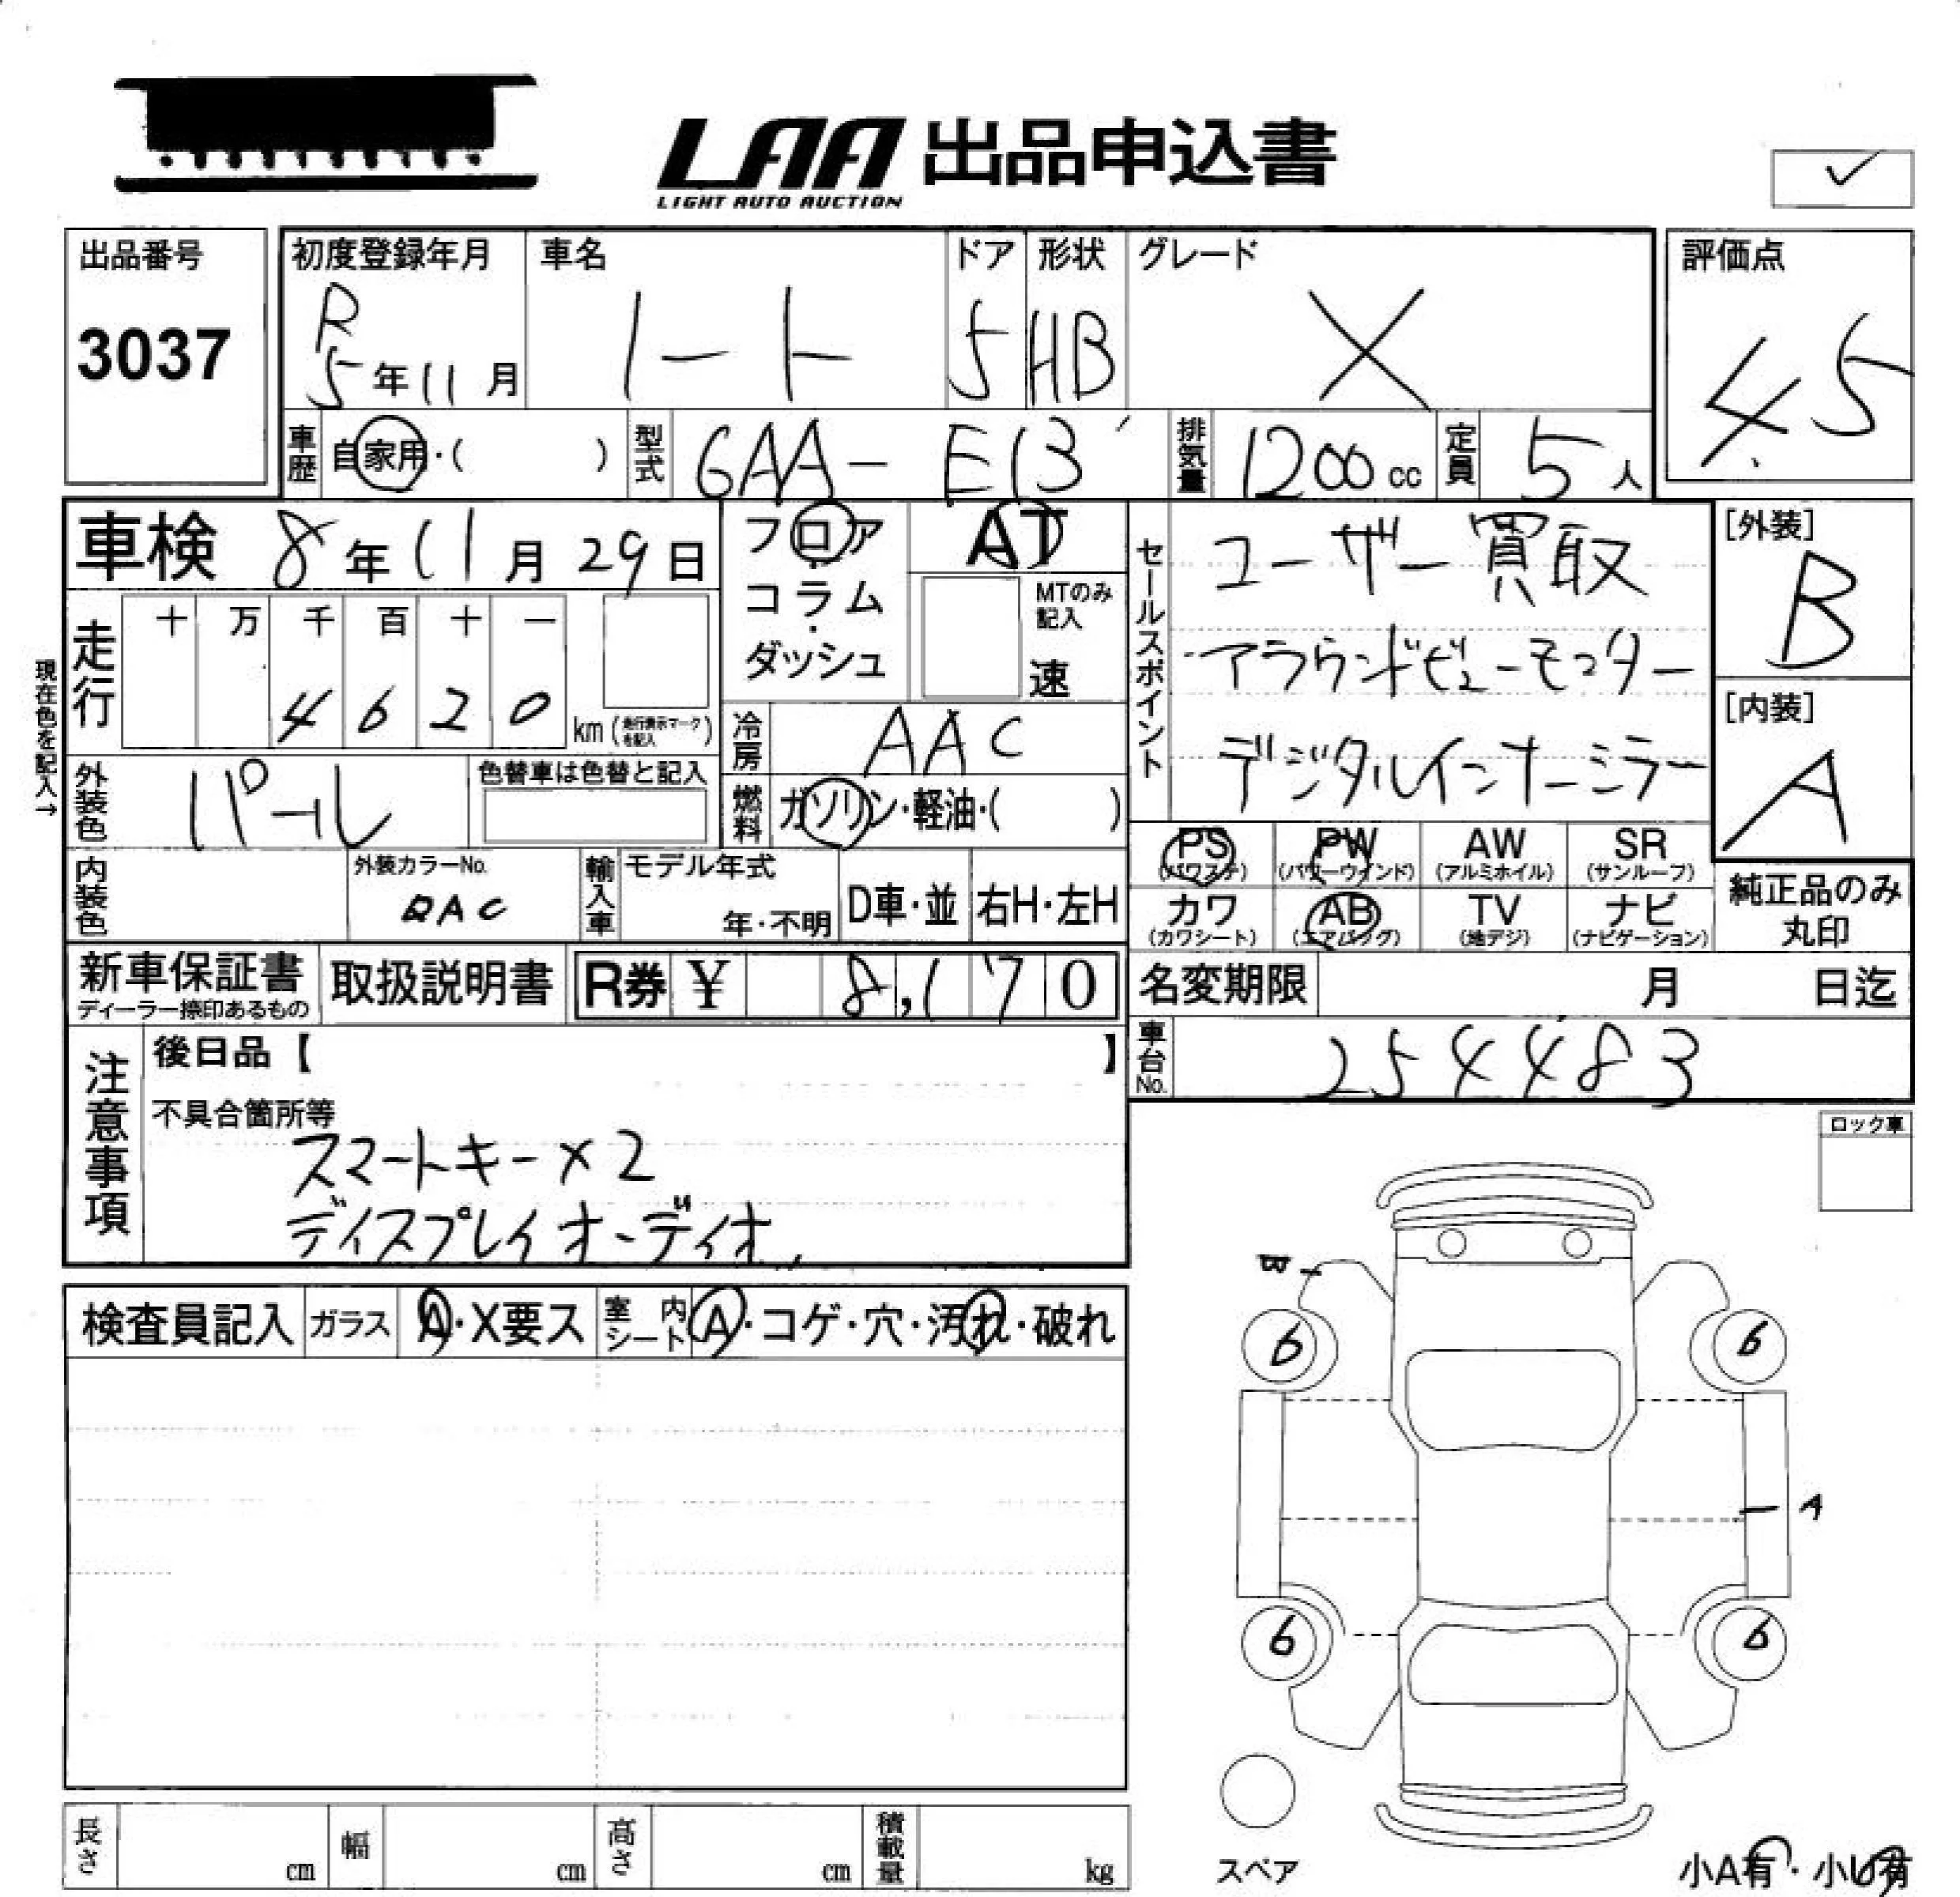 LAA 出品申込書
LIGHT AUTO AUCTION
✓
出品番号
3037
初度登録年月
R
5年11月
車名
ノート
ドア
5
形状
HB
グレード
X
評価点
4.5
車歴 自家用・( )
型式 6AA-E13
排気量 1200cc
定員 5人
車検 8年11月29日
フロア・コラム・ダッシュ
AT
MTのみ記入
速
セールスポイント
ユーザー買取
アラウンドビューモニター
デジタルインナーミラー
[外装]
B
[内装]
A
現在色を記入→
走行 十 万 千 百 十 一
4 6 2 0 km (走行表示マークを記入)
冷房 AAC
外装色 パール
色替車は色替と記入
燃料 ガソリン・軽油・( )
PS (パワステ) PW (パワーウインド) AW (アルミホイル) SR (サンルーフ)
内装色
外装カラーNo.
QAC
輸入車 モデル年式
年・不明 D車・並 右H・左H
カワ (カワシート) AB (エアバッグ) TV (地デジ) ナビ (ナビゲーション)
純正品のみ丸印
新車保証書
ディーラー捺印あるもの
取扱説明書
R券 ¥ 8,170
名変期限 月 日迄
車台No. 254483
注意事項
後日品【 】
不具合箇所等
スマートキー×2
ディスプレイオーディオ
ロック車
検査員記入 ガラス A・X要ス 室内シート A・コゲ・穴・汚れ・破れ
6
6
A
6
6
長さ cm 幅 cm 高さ cm 積載量 kg
スペア
小A有・小U有